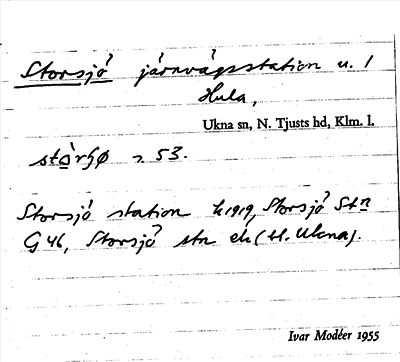 Storsjö järnvägsstation u. 1
Hula,
Ukna sn, N. Tjusts hd, Klm. l.
s. 53.
Storsjö station k 1919, Storsjö Stn
G 46, Storsjö stn ek (H. Ukna).
Ivar Modéer 1955